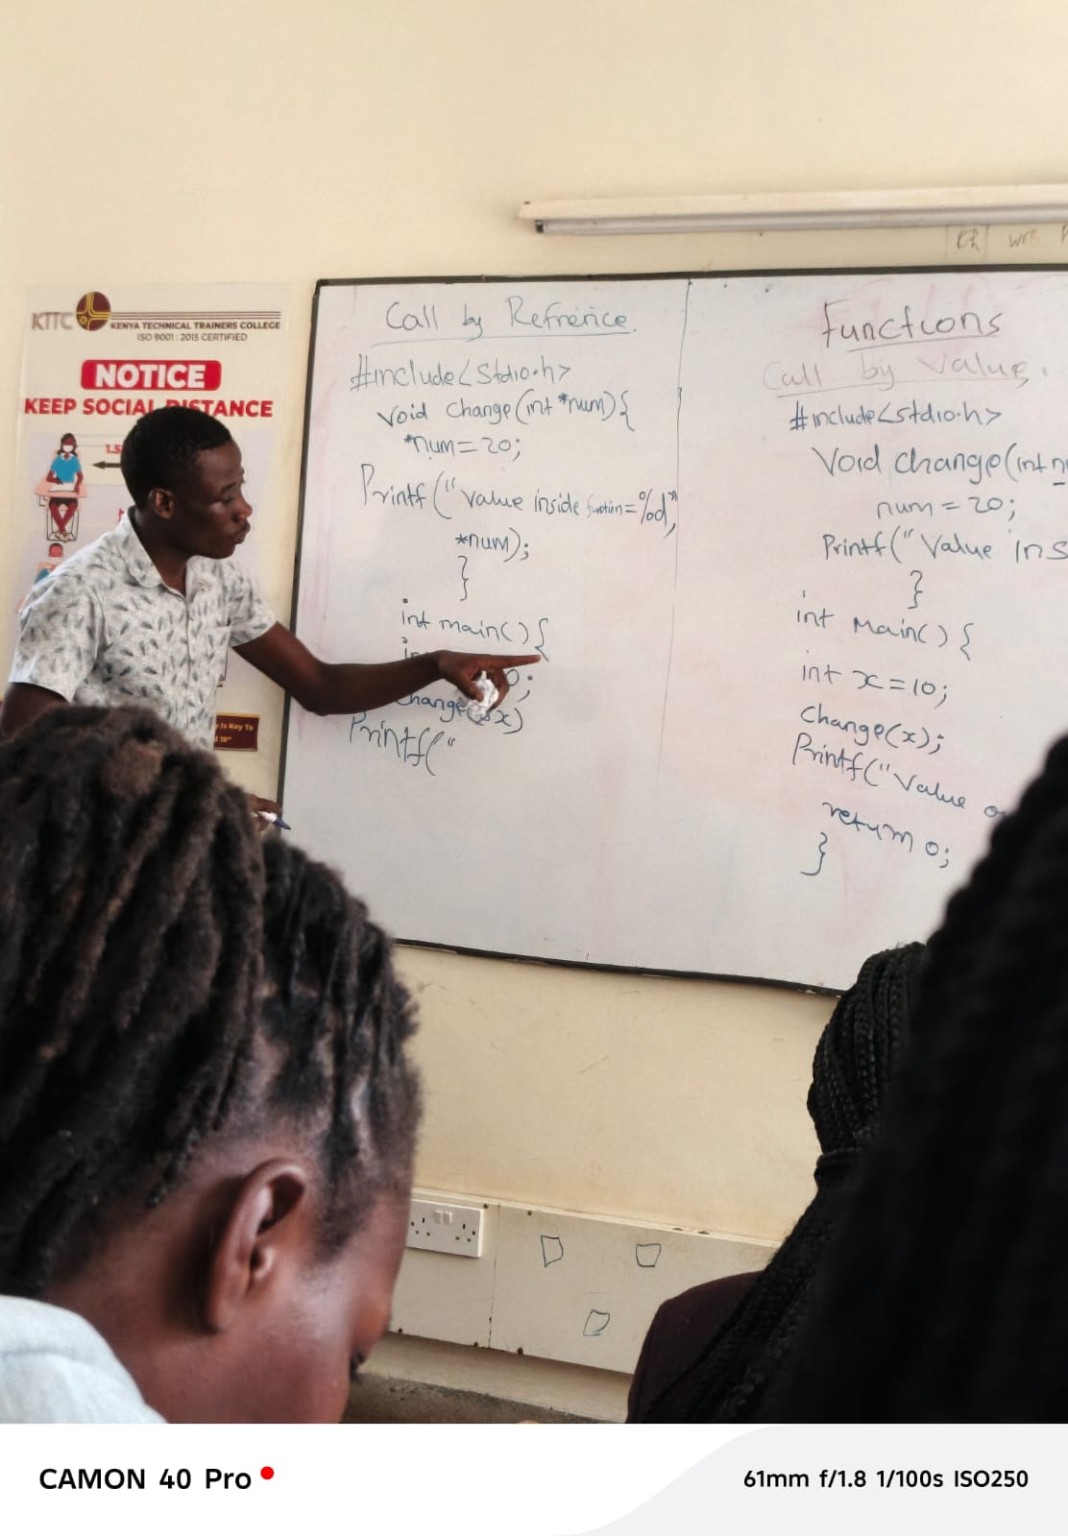 KTTC
KENYA TECHNICAL TRAINERS COLLEGE
ISO 9001 : 2015 CERTIFIED
NOTICE
KEEP SOCIAL DISTANCE
Call by Refrence.
#include<stdio.h>
void change(int *num){
*num=20;
Printf("Value inside function=%d",
*num);
}
int main(){
0;
change(&x)
Printf("
Functions
Call by Value.
#include<stdio.h>
Void change(int n
num = 20;
Printf("Value ins
}
int Main(){
int x=10;
Change(x);
Printf("Value o
return 0;
}
is Key To
CAMON 40 Pro
61mm f/1.8 1/100s ISO250